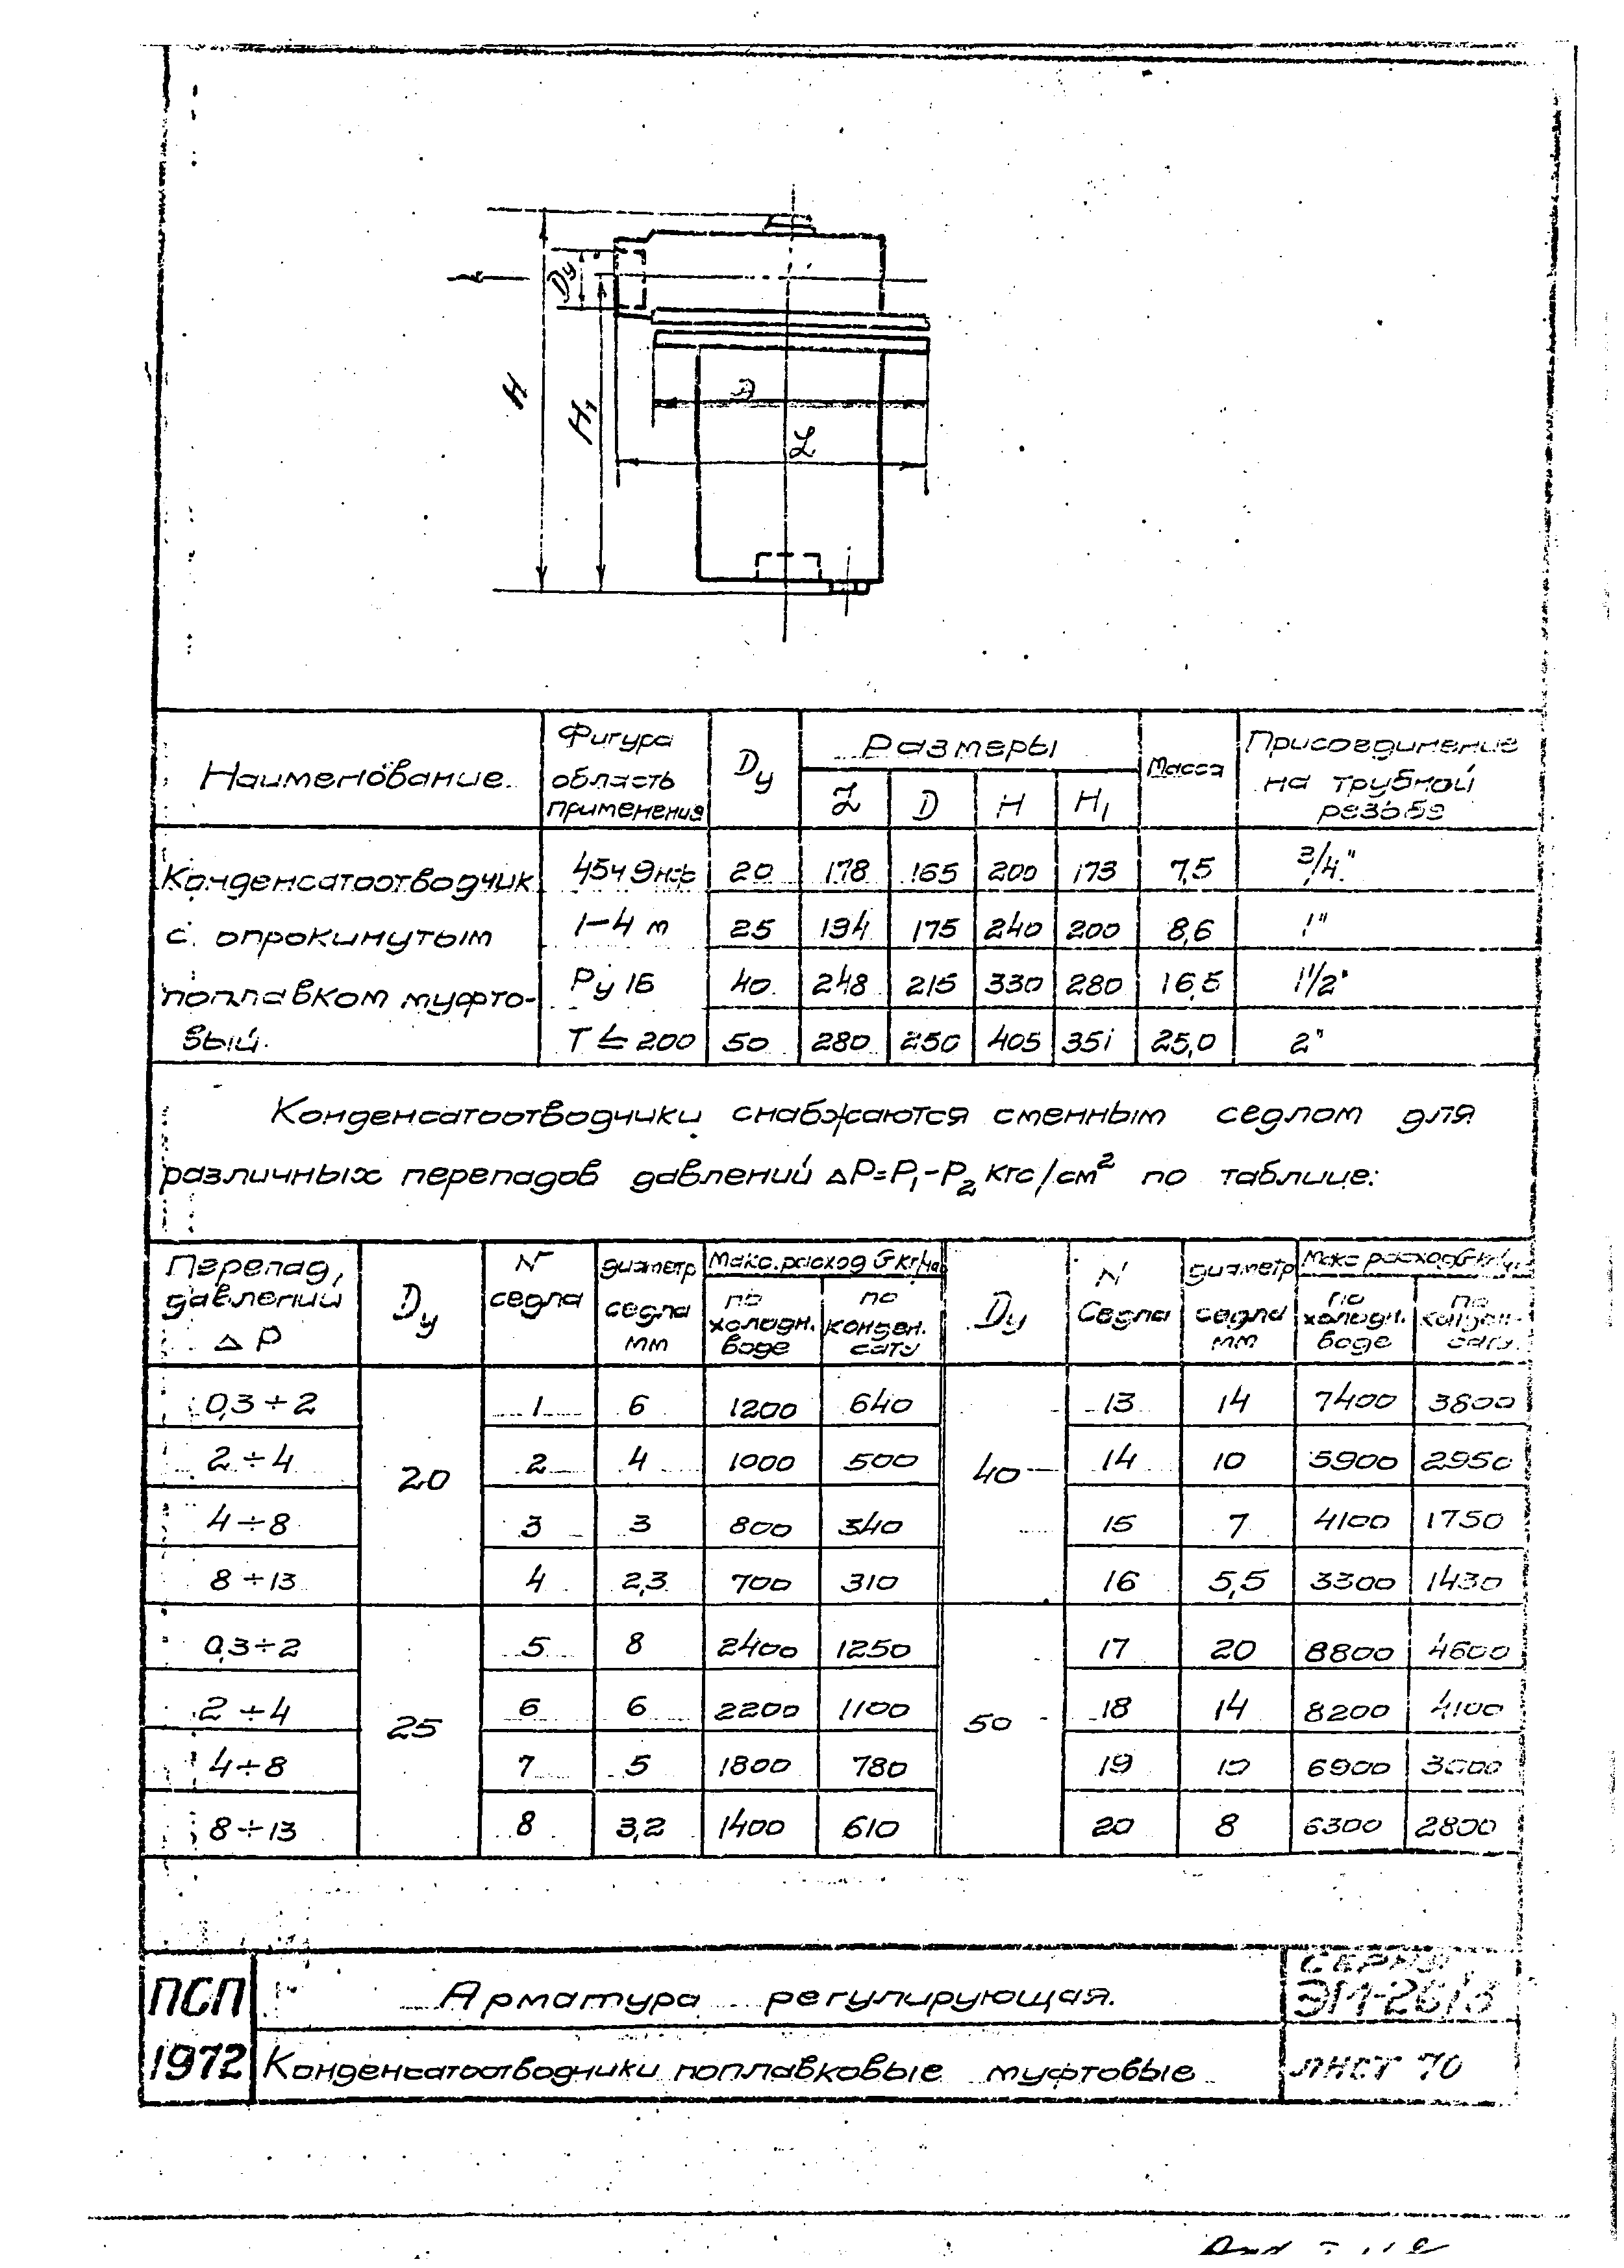 H
H1
Dу
D
L
Наименование
Фигура
область
применения
Dу
Размеры
L D H H1
Масса
Присоединение
на трубной
резьбе
Конденсатоотводчик
с опрокинутым
поплавком муфто-
вый.
45ч9нж 20 178 165 200 173 7,5 3/4"
1-4 т 25 194 175 240 200 8,6 1"
Ру 16 40 248 215 330 280 16,5 1 1/2"
T ≤ 200 50 280 250 405 351 25,0 2"
Конденсатоотводчики снабжаются сменным седлом для
различных перепадов давлений ΔP=P1-P2 кгс/см² по таблице:
Перепад,
давлений
ΔP
Dу
N
седла
диаметр
седла
мм
Макс. расход G кг/час
по
холодн.
воде
по
конден.
сату
Dу
N
Седла
диаметр
седла
мм
Макс расход G кг/ч
по
холодн.
воде
по
конден-
сату.
0,3÷2 1 6 1200 640 13 14 7400 3800
2÷4 2 4 1000 500 14 10 5900 2950
20 40
4÷8 3 3 800 340 15 7 4100 1750
8÷13 4 2,3 700 310 16 5,5 3300 1430
0,3÷2 5 8 2400 1250 17 20 8800 4600
2÷4 6 6 2200 1100 18 14 8200 4100
25 50
4÷8 7 5 1800 780 19 10 6900
8÷13 8 3,2 1400 610 20 8 6300 2800
ПСП
1972
Арматура регулирующая.
Конденсатоотводчики поплавковые муфтовые
СЕРИЯ
ЭМ-26/3
ЛИСТ 70